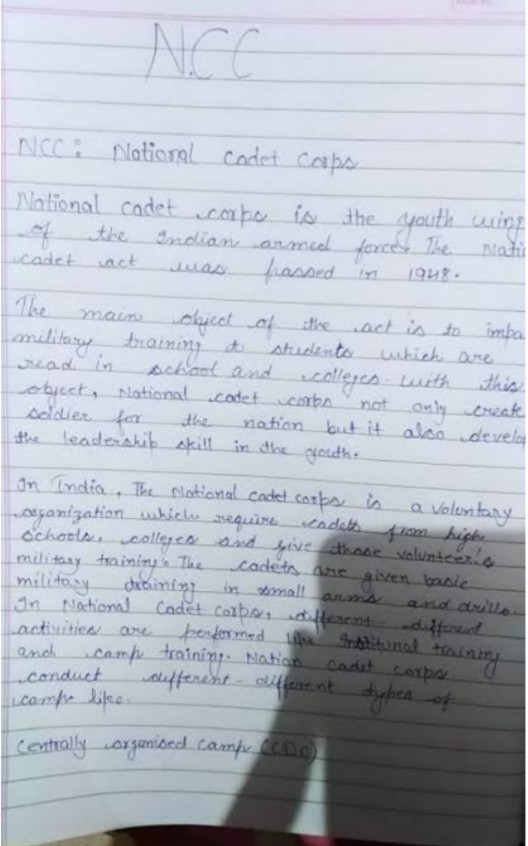 NCC
NCC: National cadet corps
National cadet corps is the youth wing
of the Indian armed forces. The Natio
cadet act was passed in 1948.
The main object of the act is to impa
military training to students which are
read in school and colleges. with this
object, National cadet corps not only creat
soldier for the nation but it also develop
the leadership skill in the youth.
In India, The National cadet corps is a voluntary
organization which require cadets from high
Schools, colleges and give those volunteer's
military training. The cadets are given basic
military training in small arms and drills.
In National Cadet Corps, different different
activities are performed like training
and camp training. Nation cadet corps
conduct different-different types of
camps like.
Centrally organised camp